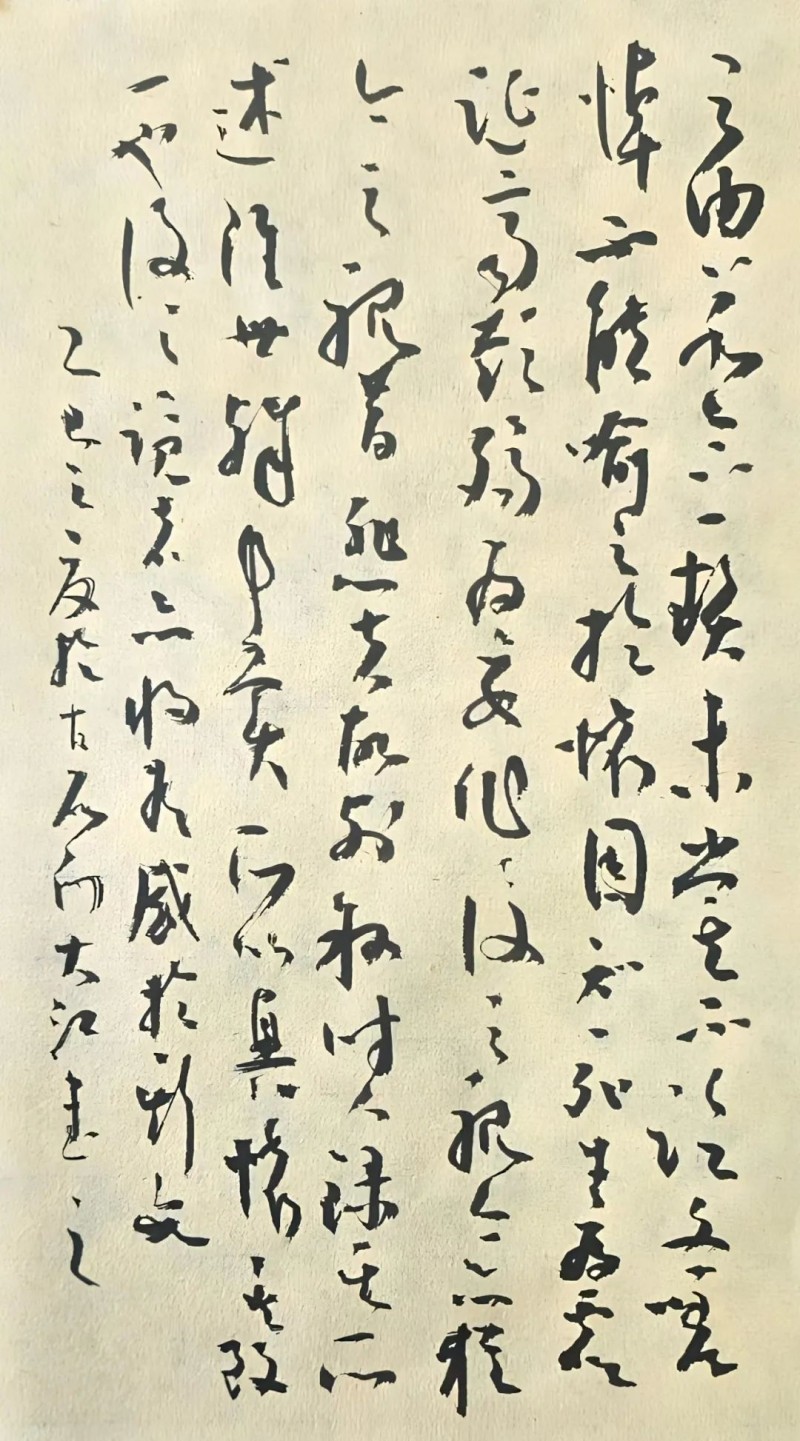 之由若合一契未嘗不臨文嗟
悼不能喻之於懷固知一死生為虛
誕齊彭殤為妄作後之視今亦猶
今之視昔悲夫故列敘時人錄其所
述雖世殊事異所以興懷其致
一也後之覽者亦將有感於斯文
乙巳之夏於古石大江書之